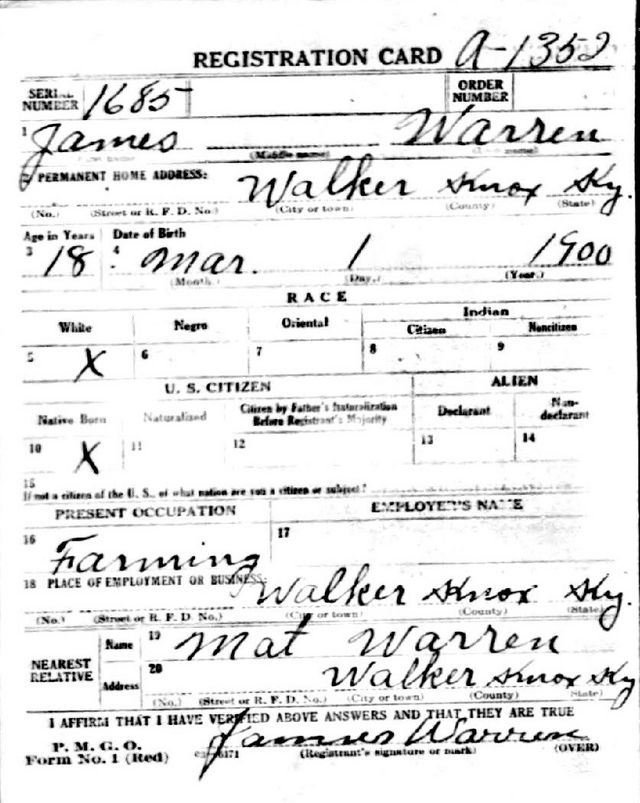 REGISTRATION CARD A-1352
SERIAL NUMBER 1685 ORDER NUMBER
1 James (Middle name) Warren
2 PERMANENT HOME ADDRESS: Walker Knox Ky.
(No.) (Street or R. F. D. No.) (City or town) (County) (State)
Age in Years Date of Birth
3 18 4 Mar. 1 1900
(Month) (Day.) (Year.)
RACE
White Negro Oriental Indian
Citizen Noncitizen
5 X 6 7 8 9
U. S. CITIZEN ALIEN
Native Born Naturalized Citizen by Father's Naturalization Before Registrant's Majority Declarant Non-declarant
10 X 11 12 13 14
15
If not a citizen of the U. S., of what nation are you a citizen or subject?
PRESENT OCCUPATION EMPLOYER'S NAME
16 Farming 17
18 PLACE OF EMPLOYMENT OR BUSINESS: Walker Knox Ky.
(No.) (Street or R. F. D. No.) (City or town) (County) (State)
NEAREST RELATIVE Name 19 Mat Warren
Address 20 Walker Knox Ky
(No.) (Street or R. F. D. No.) (City or town) (County) (State)
I AFFIRM THAT I HAVE VERIFIED ABOVE ANSWERS AND THAT THEY ARE TRUE
P. M. G. O.
Form No. 1 (Red) James Warren
(Registrant's signature or mark) (OVER)